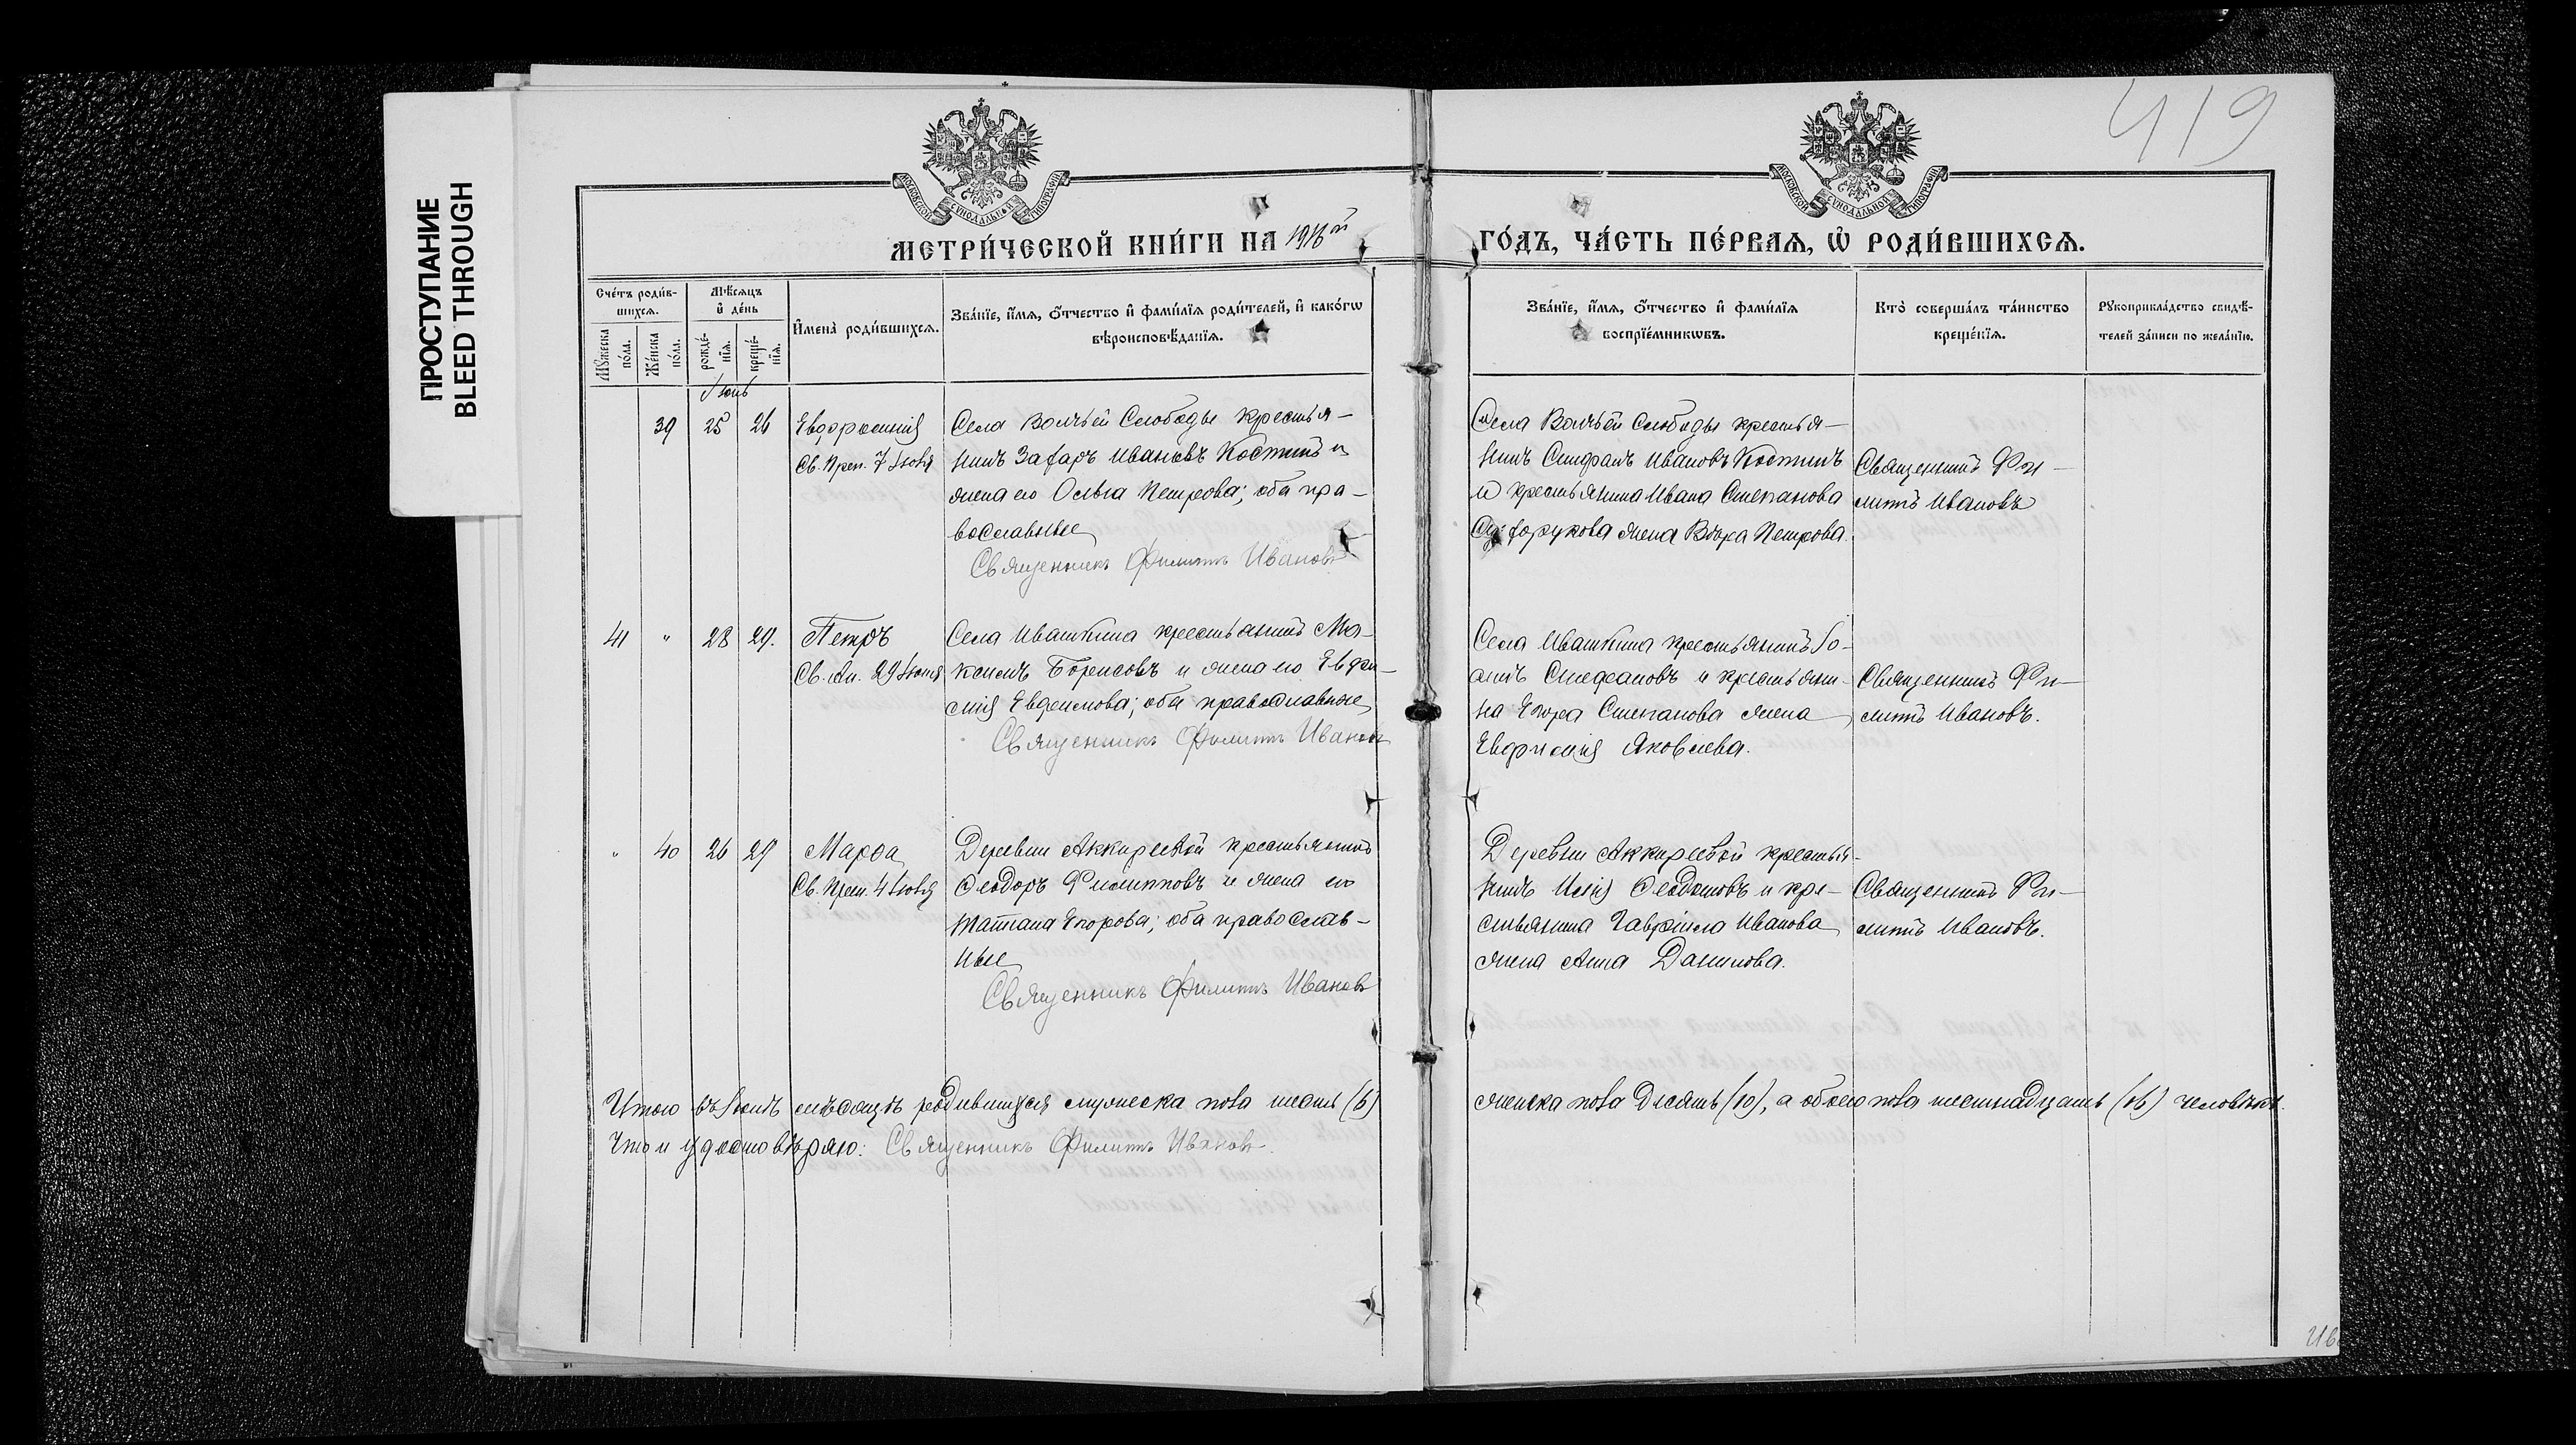 ПРОСТУПАНИЕ
BLEED THROUGH
419
МОСКОВСКОЙ СУНОДАЛЬНОЙ ТИПОГРАФІИ
МОСКОВСКОЙ СУНОДАЛЬНОЙ ТИПОГРАФІИ
МЕТРИ́ЧЕСКОЙ КНИ́ГИ НА 1916ой ГО́ДЪ, ЧА́СТЬ ПЕ́РВАЯ, Ѽ РОДИ́ВШИХСЯ.
Сче́тъ роди́в-
шихся.
Мꙋ́жеска по́ла.
Же́нска по́ла.
Мѣ́сяцъ
и҆ де́нь
рожде́-
нїя.
креще́-
нїя.
И҆мена̀ роди́вшихся.
Зва́нїе, и҆́мя, ѻ҆́тчество и҆ фами́лїя роди́телей, и҆ како́гѡ
вѣроисповѣ́данїя.
Зва́нїе, и҆́мя, ѻ҆́тчество и҆ фами́лїя
воспрїе́мникѡвъ.
Кто̀ соверша́лъ та́инство
креще́нїя.
Рꙋкоприкла́дство свидѣ́-
телей за́писи по жела́нїю.
Іюнь
39 25 26 Евфросинія
Св. Преп. 7 Іюня
Села Волчьей Слободы крестья-
нинъ Захаръ Ивановъ Костинъ и
жена его Ольга Петрова; оба пра-
вославные
Священникъ Филиппъ Ивановъ
Села Волчьей Слободы крестья-
нинъ Ивановъ Костинъ
и крестьянина Ивана Степанова
жена Вѣра Петрова.
Священникъ Фи-
липпъ Ивановъ
41 " 28 29. Петръ
Св. Ап. 29 Іюня
Села Ивашкина крестьянинъ Ма-
ксимъ Борисовъ и жена его Евфи-
мія Евфимова; оба православные
Священникъ Филиппъ Ивановъ
Села Ивашкина крестьянинъ Іо-
аннъ Стефановъ и крестьяни-
на Егора Степанова жена
Евфимія Яковлева.
Священникъ Фи-
липпъ Ивановъ.
" 40 26 29 Марѳа
Св. Преп. 4 Іюля
Деревни Аккиреевой крестьянинъ
Ѳеодоръ Филипповъ и жена его
Татіана Егорова; оба православ-
ные
Священникъ Филиппъ Ивановъ
Деревни Аккиреевой крестья-
нинъ Илія и кре-
стьянина Гавріила Иванова
жена Анна Данилова.
Священникъ Фи-
липпъ Ивановъ.
Итого въ Іюнѣ мѣсяцѣ родившихся мужеска пола шесть (6) женска пола десять (10), а обоего пола шестнадцать (16) человѣкъ.
Что и удостовѣряю: Священникъ Филиппъ Ивановъ.